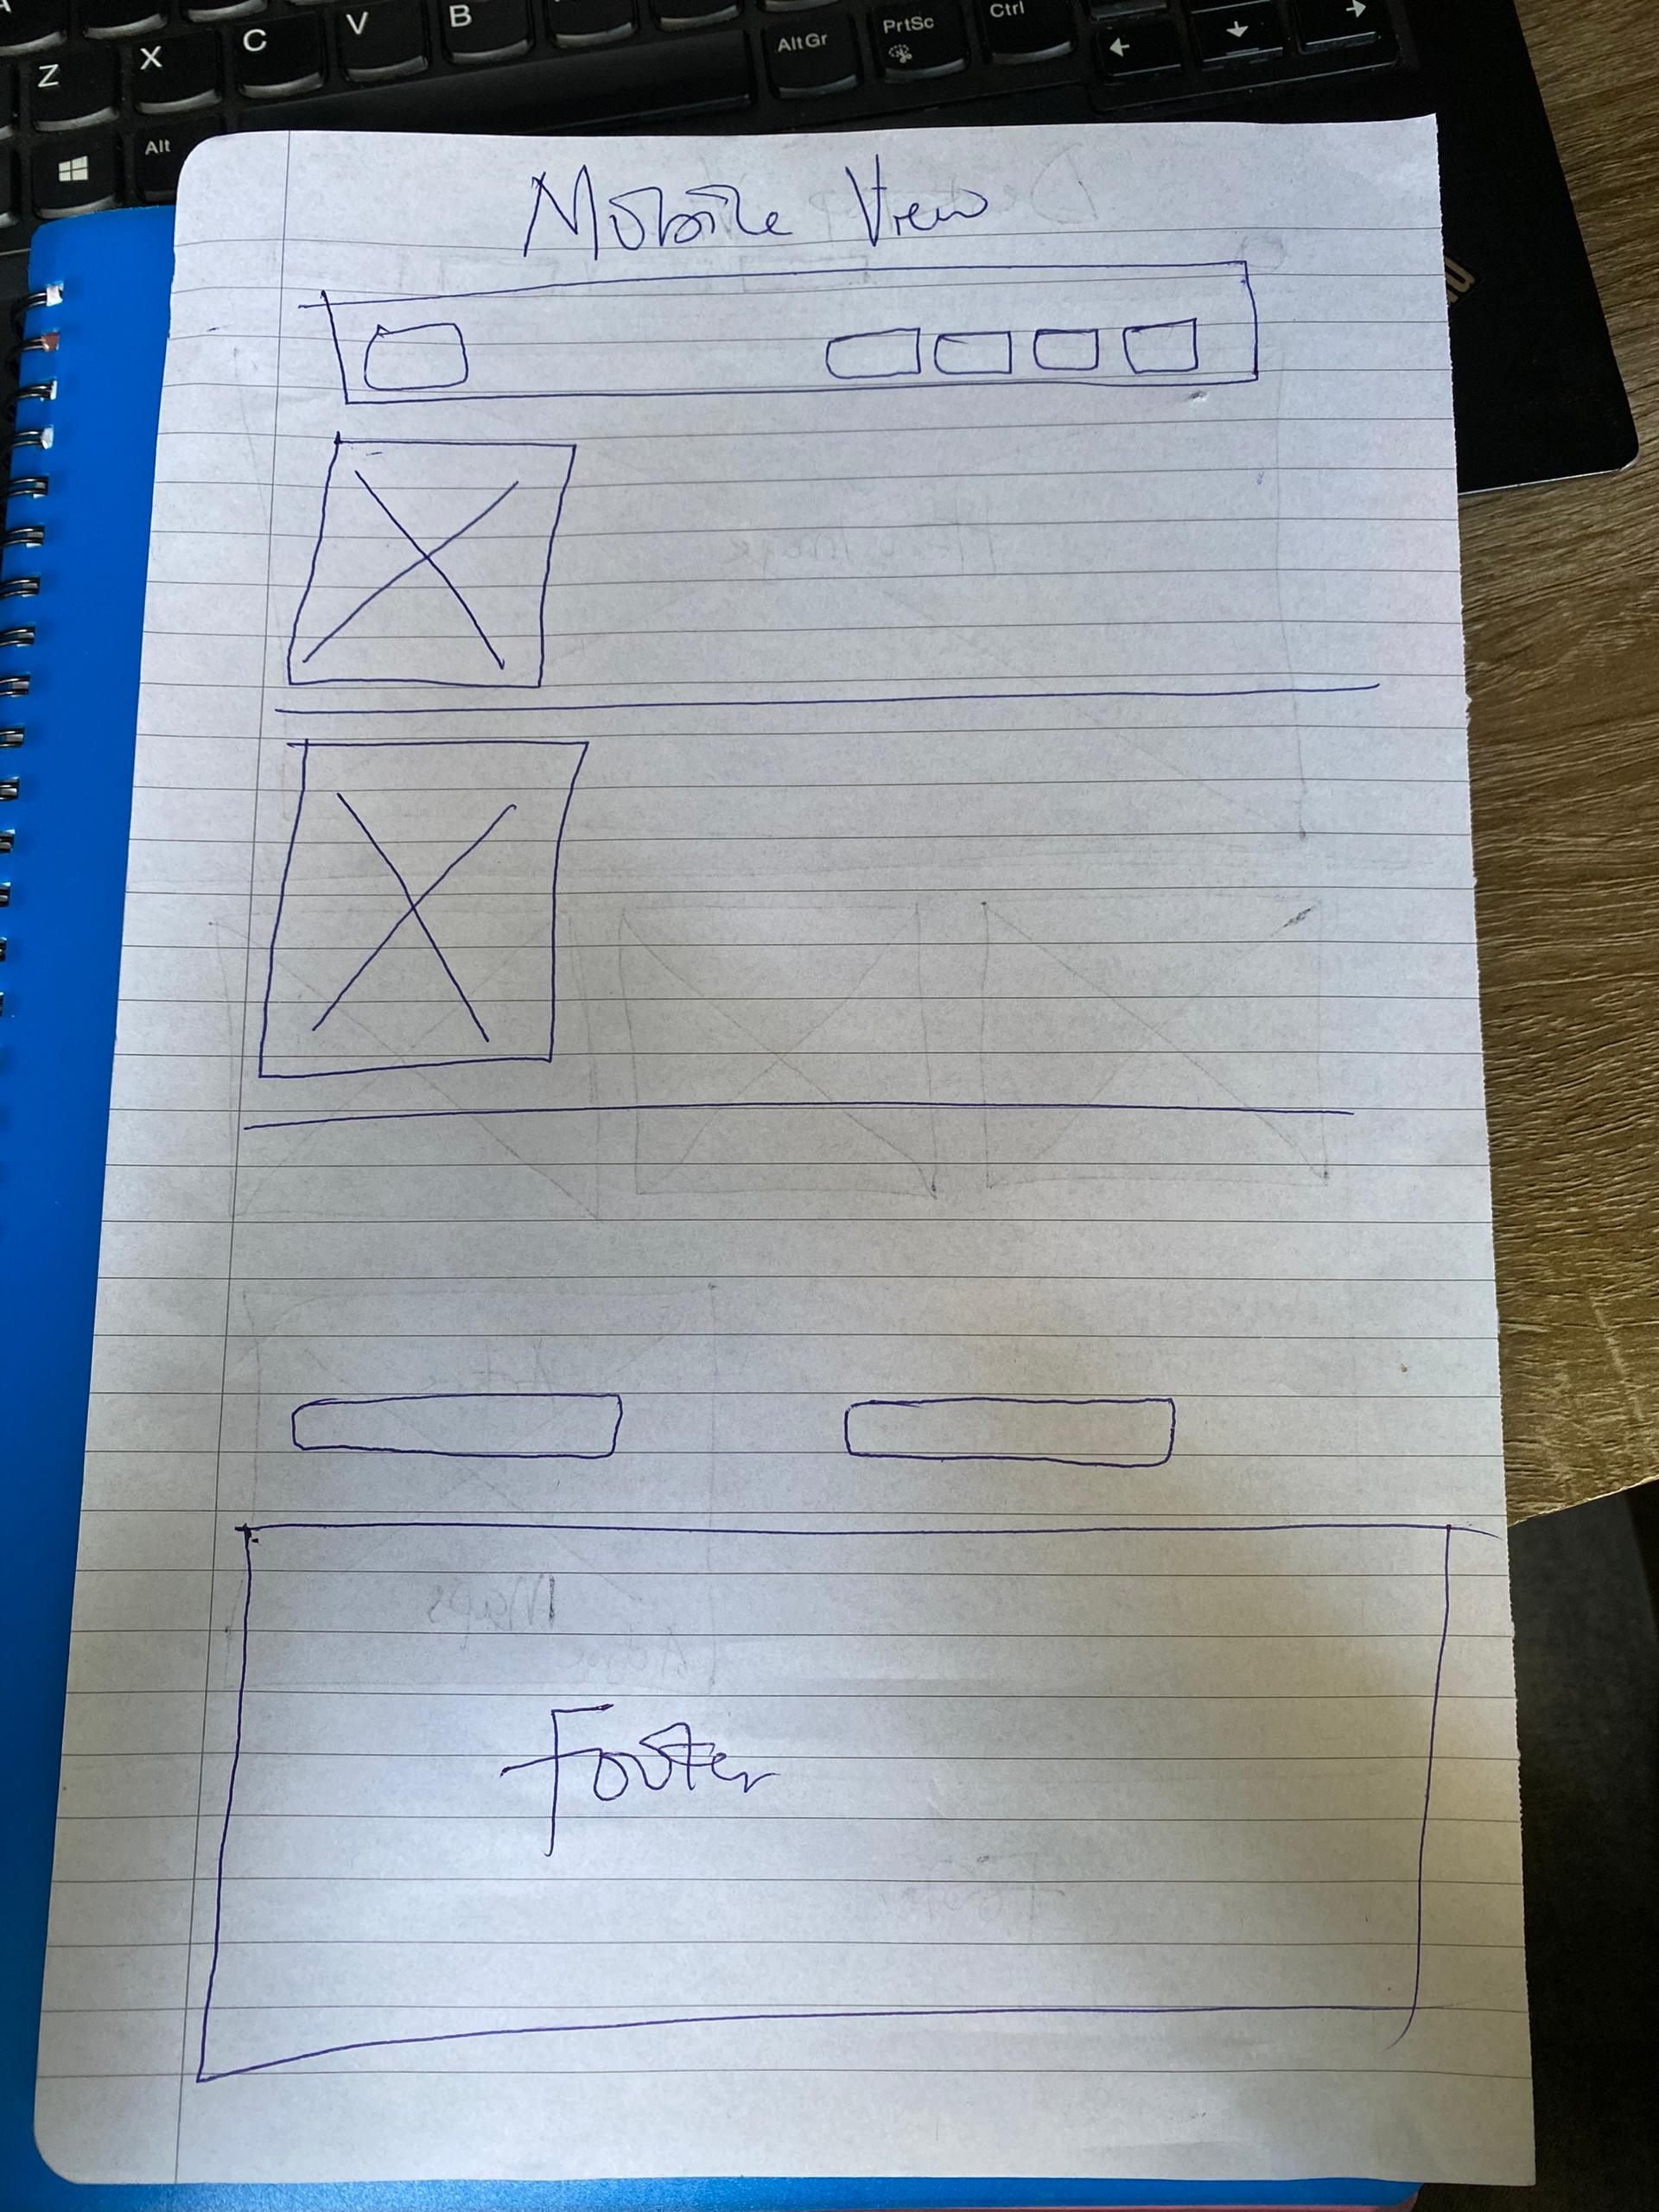 Z X C V B
AltGr PrtSc Ctrl
Alt
Mobile View
Footer